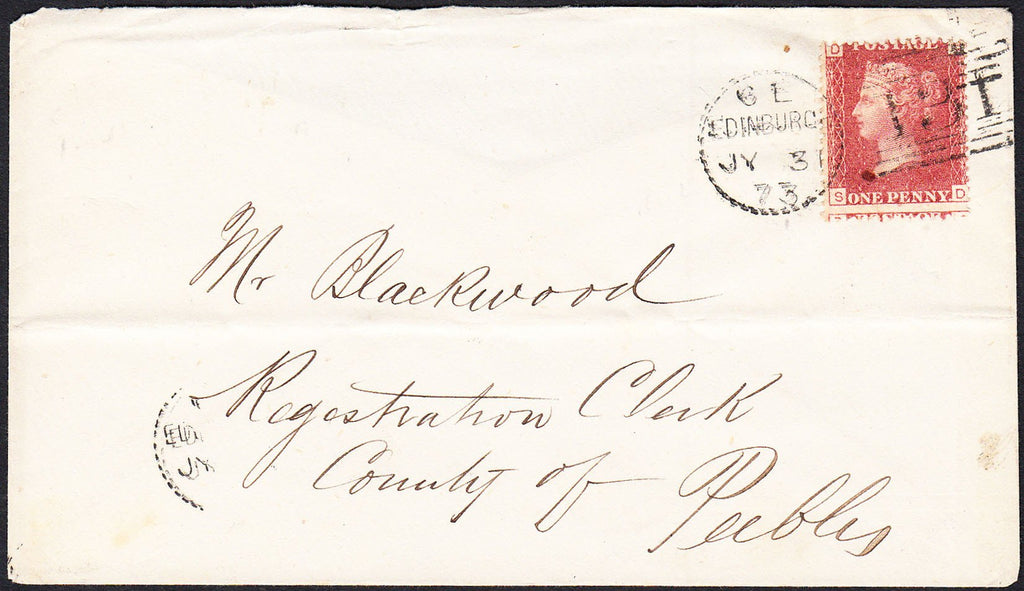 D POSTAGE
6 E
EDINBURG
JY 31
73
131
S ONE PENNY D
Mr Blackwood
Registration Clerk
County of Peebles
EDI
JY